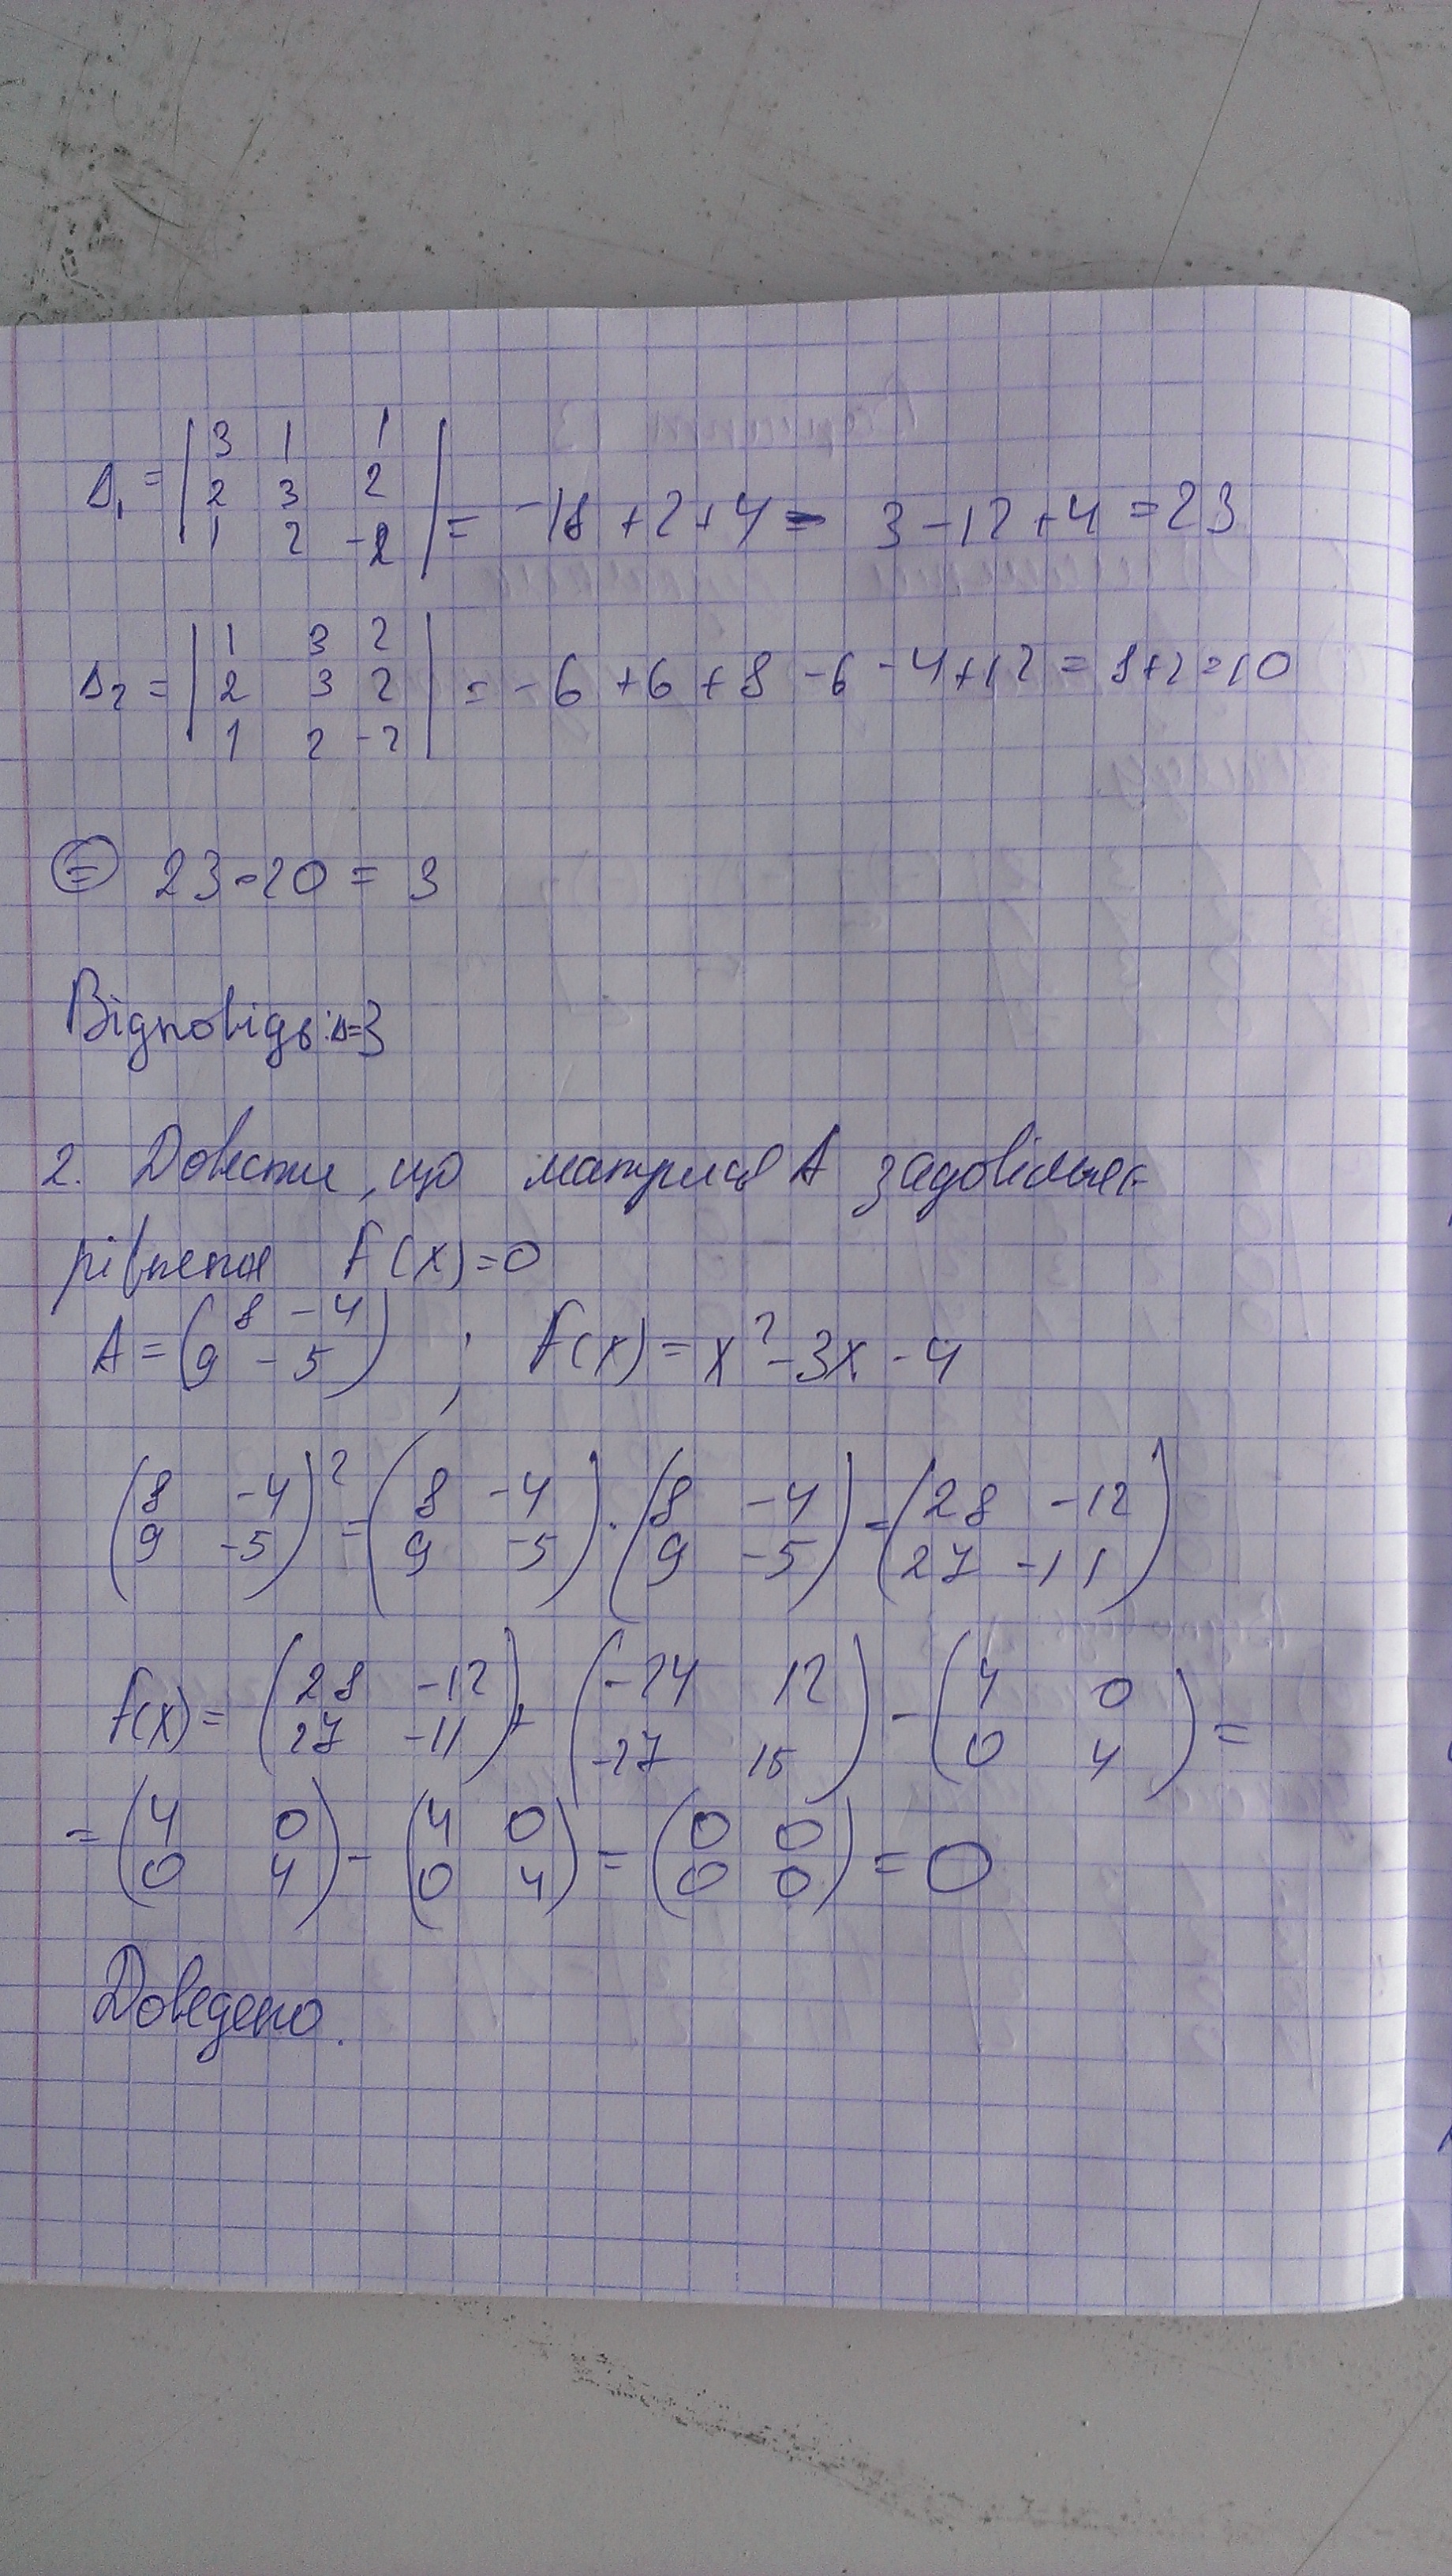 Δ₁ = | 3 1 1 |
| 2 3 2 |
| 1 2 -2 | = -18 + 2 + 4 - 3 - 12 + 4 = 23
Δ₂ = | 1 3 2 |
| 2 3 2 |
| 1 2 -2 | = -6 + 6 + 8 - 6 - 4 + 12 = 8 + 2 = 10
= 23 - 20 = 3
Відповідь: Δ=3
2. Довести, що матриця A задовільняє
рівняння f(x) = 0
A = ( 8 -4 )
( 9 -5 ) ; f(x) = x² - 3x - 4
( 8 -4 )² = ( 8 -4 ) · ( 8 -4 ) = ( 28 -12 )
( 9 -5 ) ( 9 -5 ) ( 9 -5 ) ( 27 -11 )
f(x) = ( 28 -12 ) + ( -24 12 ) - ( 4 0 ) =
( 27 -11 ) ( -27 15 ) ( 0 4 )
= ( 4 0 ) - ( 4 0 ) = ( 0 0 ) = 0
( 0 4 ) ( 0 4 ) ( 0 0 )
Доведено.